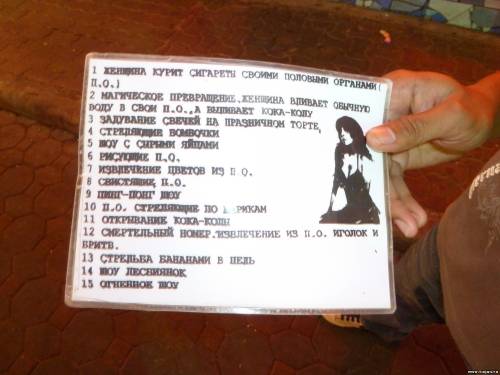 1 ЖЕНЩИНА КУРИТ СИГАРЕТЫ СВОИМИ ПОЛОВЫМИ ОРГАНАМИ(
П.О.)
2 МАГИЧЕСКОЕ ПРЕВРАЩЕНИЕ.ЖЕНЩИНА ВЛИВАЕТ ОБЫЧНУЮ
ВОДУ В СВОИ П.О.,А ВЫЛИВАЕТ КОКА-КОЛУ
3 ЗАДУВАНИЕ СВЕЧЕЙ НА ПРАЗНИЧНОМ ТОРТЕ
4 СТРЕЛЯЮЩИЕ БОМБОЧКИ
5 ШОУ С СЫРЫМИ ЯЙЦАМИ
6 РИСУЮЩИЕ П.О.
7 ИЗВЛЕЧЕНИЕ ЦВЕТОВ ИЗ П.О.
8 СВИСТЯЩИЕ П.О.
9 ПИНГ-ПОНГ ШОУ
10 П.О. СТРЕЛЯЮЩИЕ ПО
11 ОТКРЫВАНИЕ КОКА-КОЛЫ
12 СМЕРТЕЛЬНЫЙ НОМЕР.ИЗВЛЕЧЕНИЕ ИЗ П.О. ИГОЛОК И
БРИТВ.
13 СТРЕЛЬБА БАНАНАМИ В ЦЕЛЬ
14 ШОУ ЛЕСБИЯНОК
15 ОГНЕННОЕ ШОУ